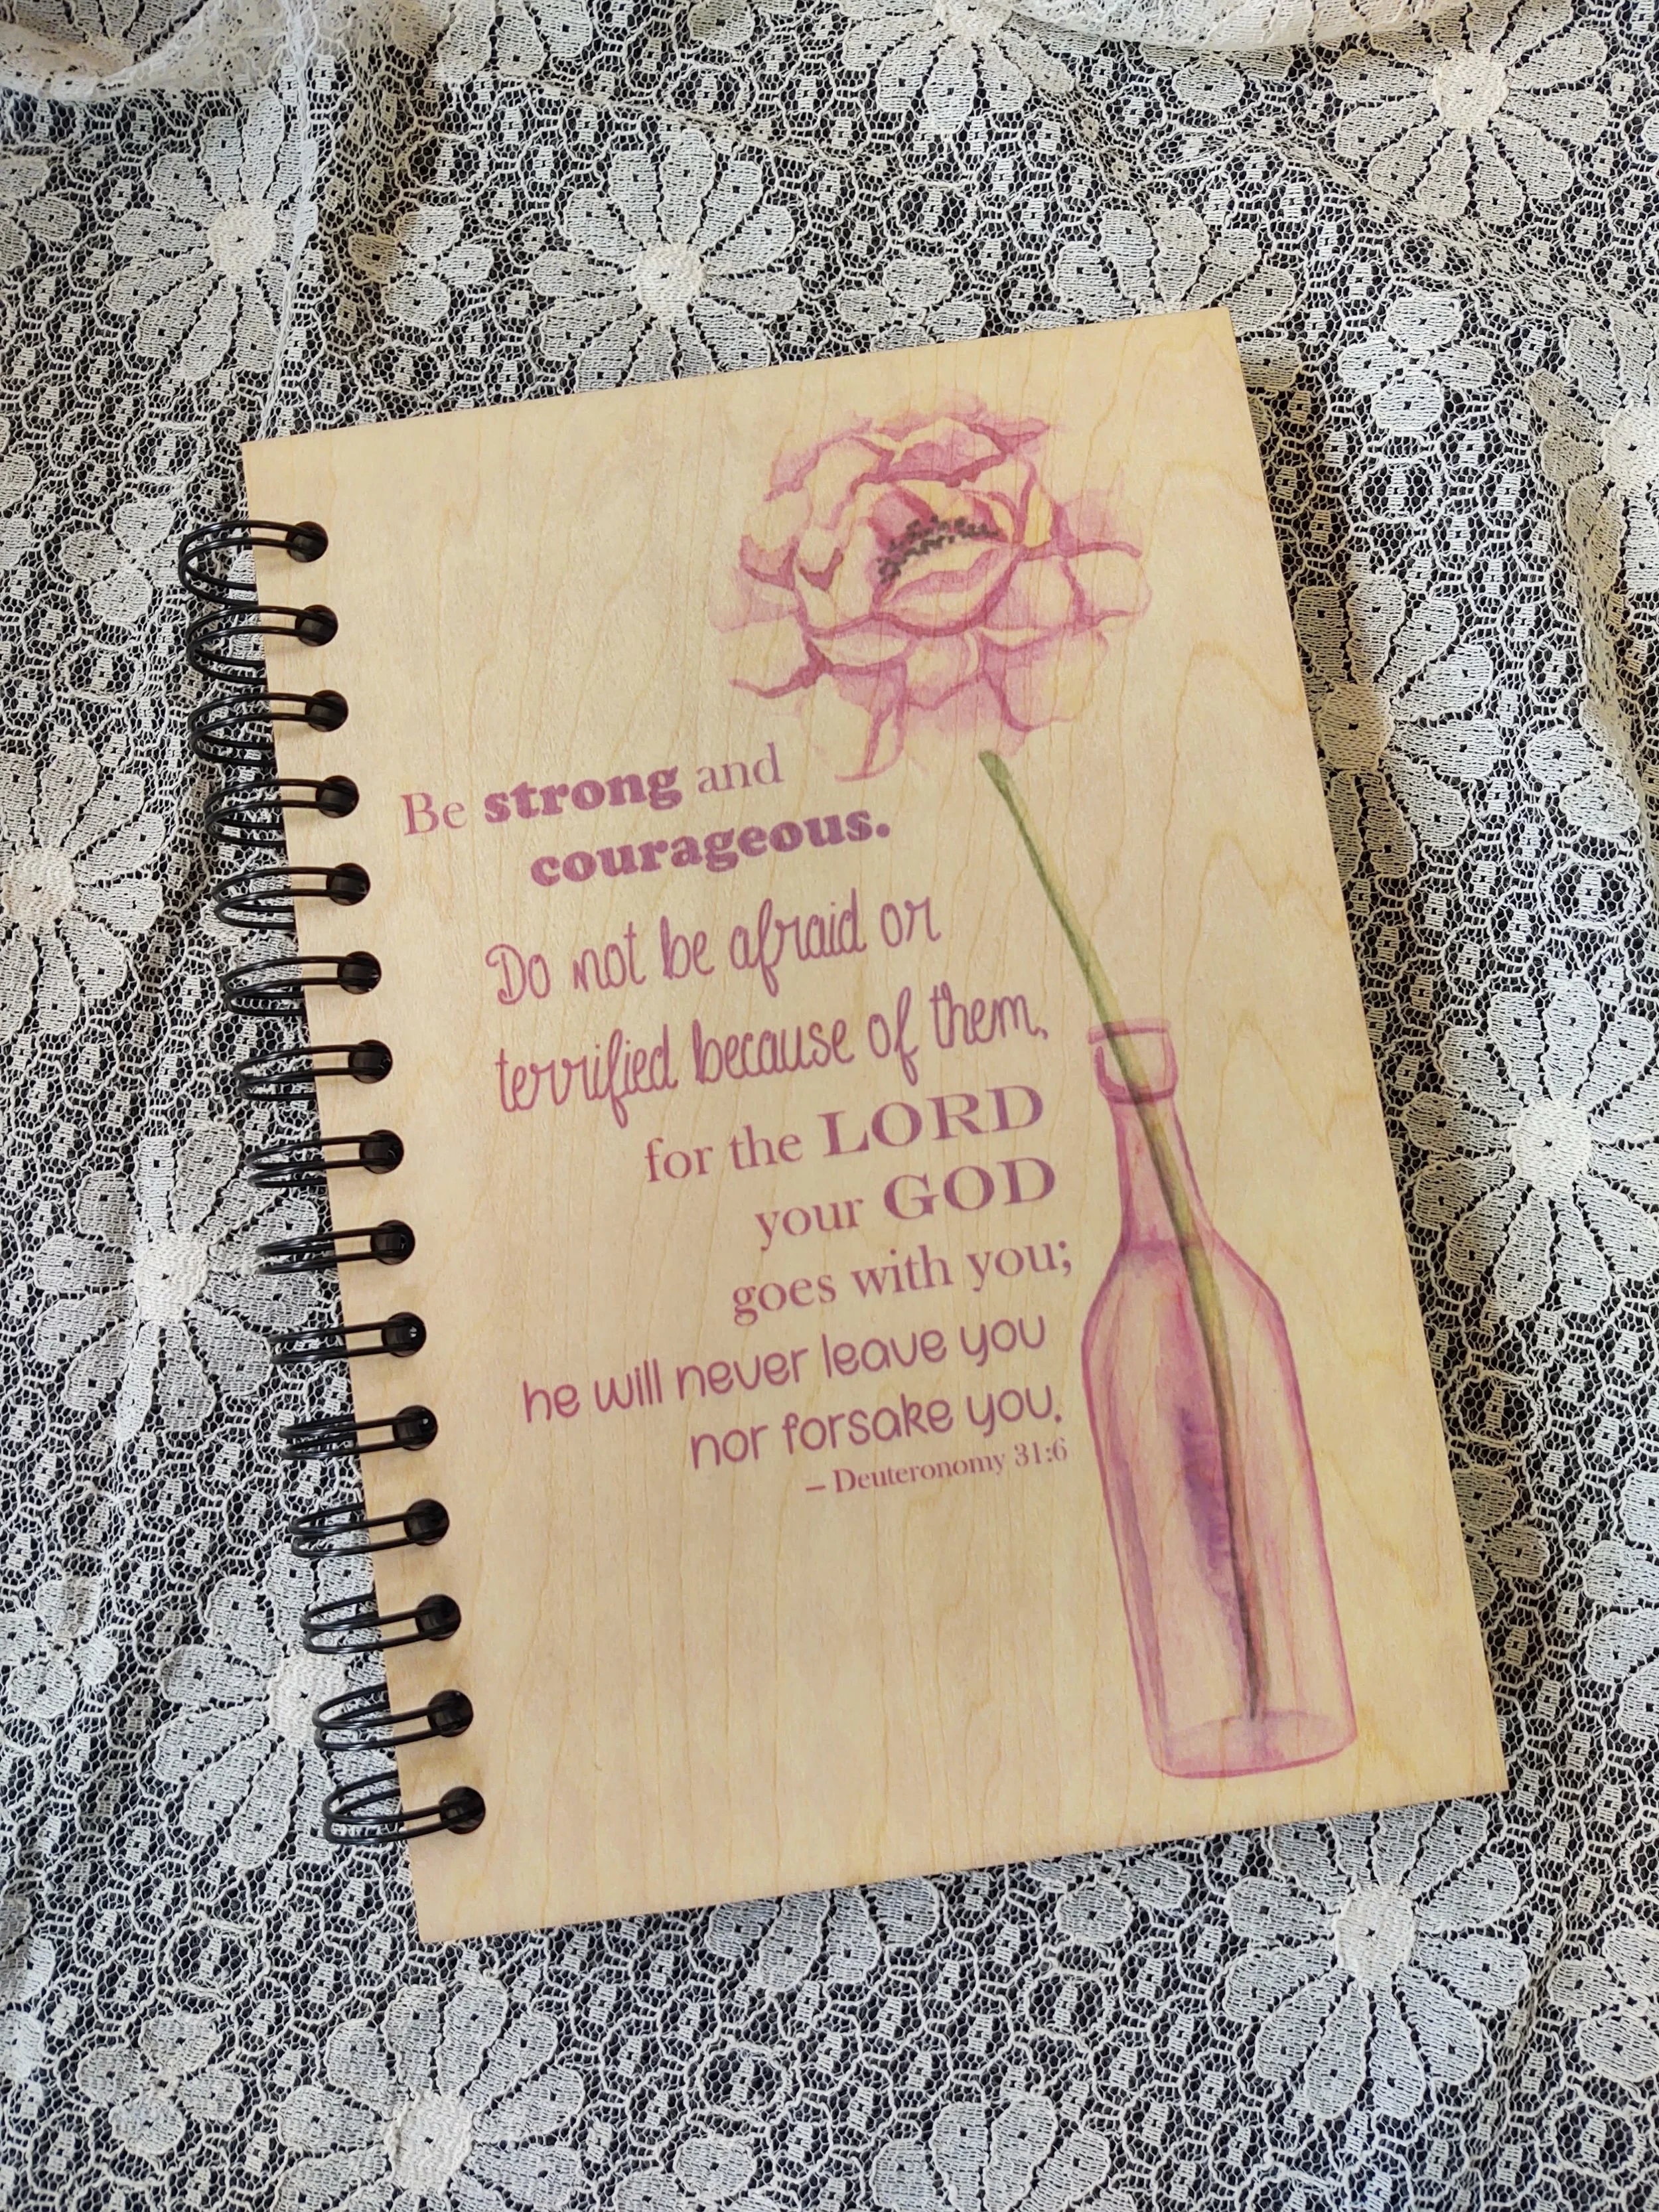 Be strong and
courageous.
Do not be afraid or
terrified because of them,
for the LORD
your GOD
goes with you;
he will never leave you
nor forsake you.
– Deuteronomy 31:6